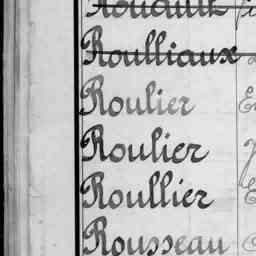 Rouault
Roulliaux
Roulier
Roulier
Roullier
Rousseau